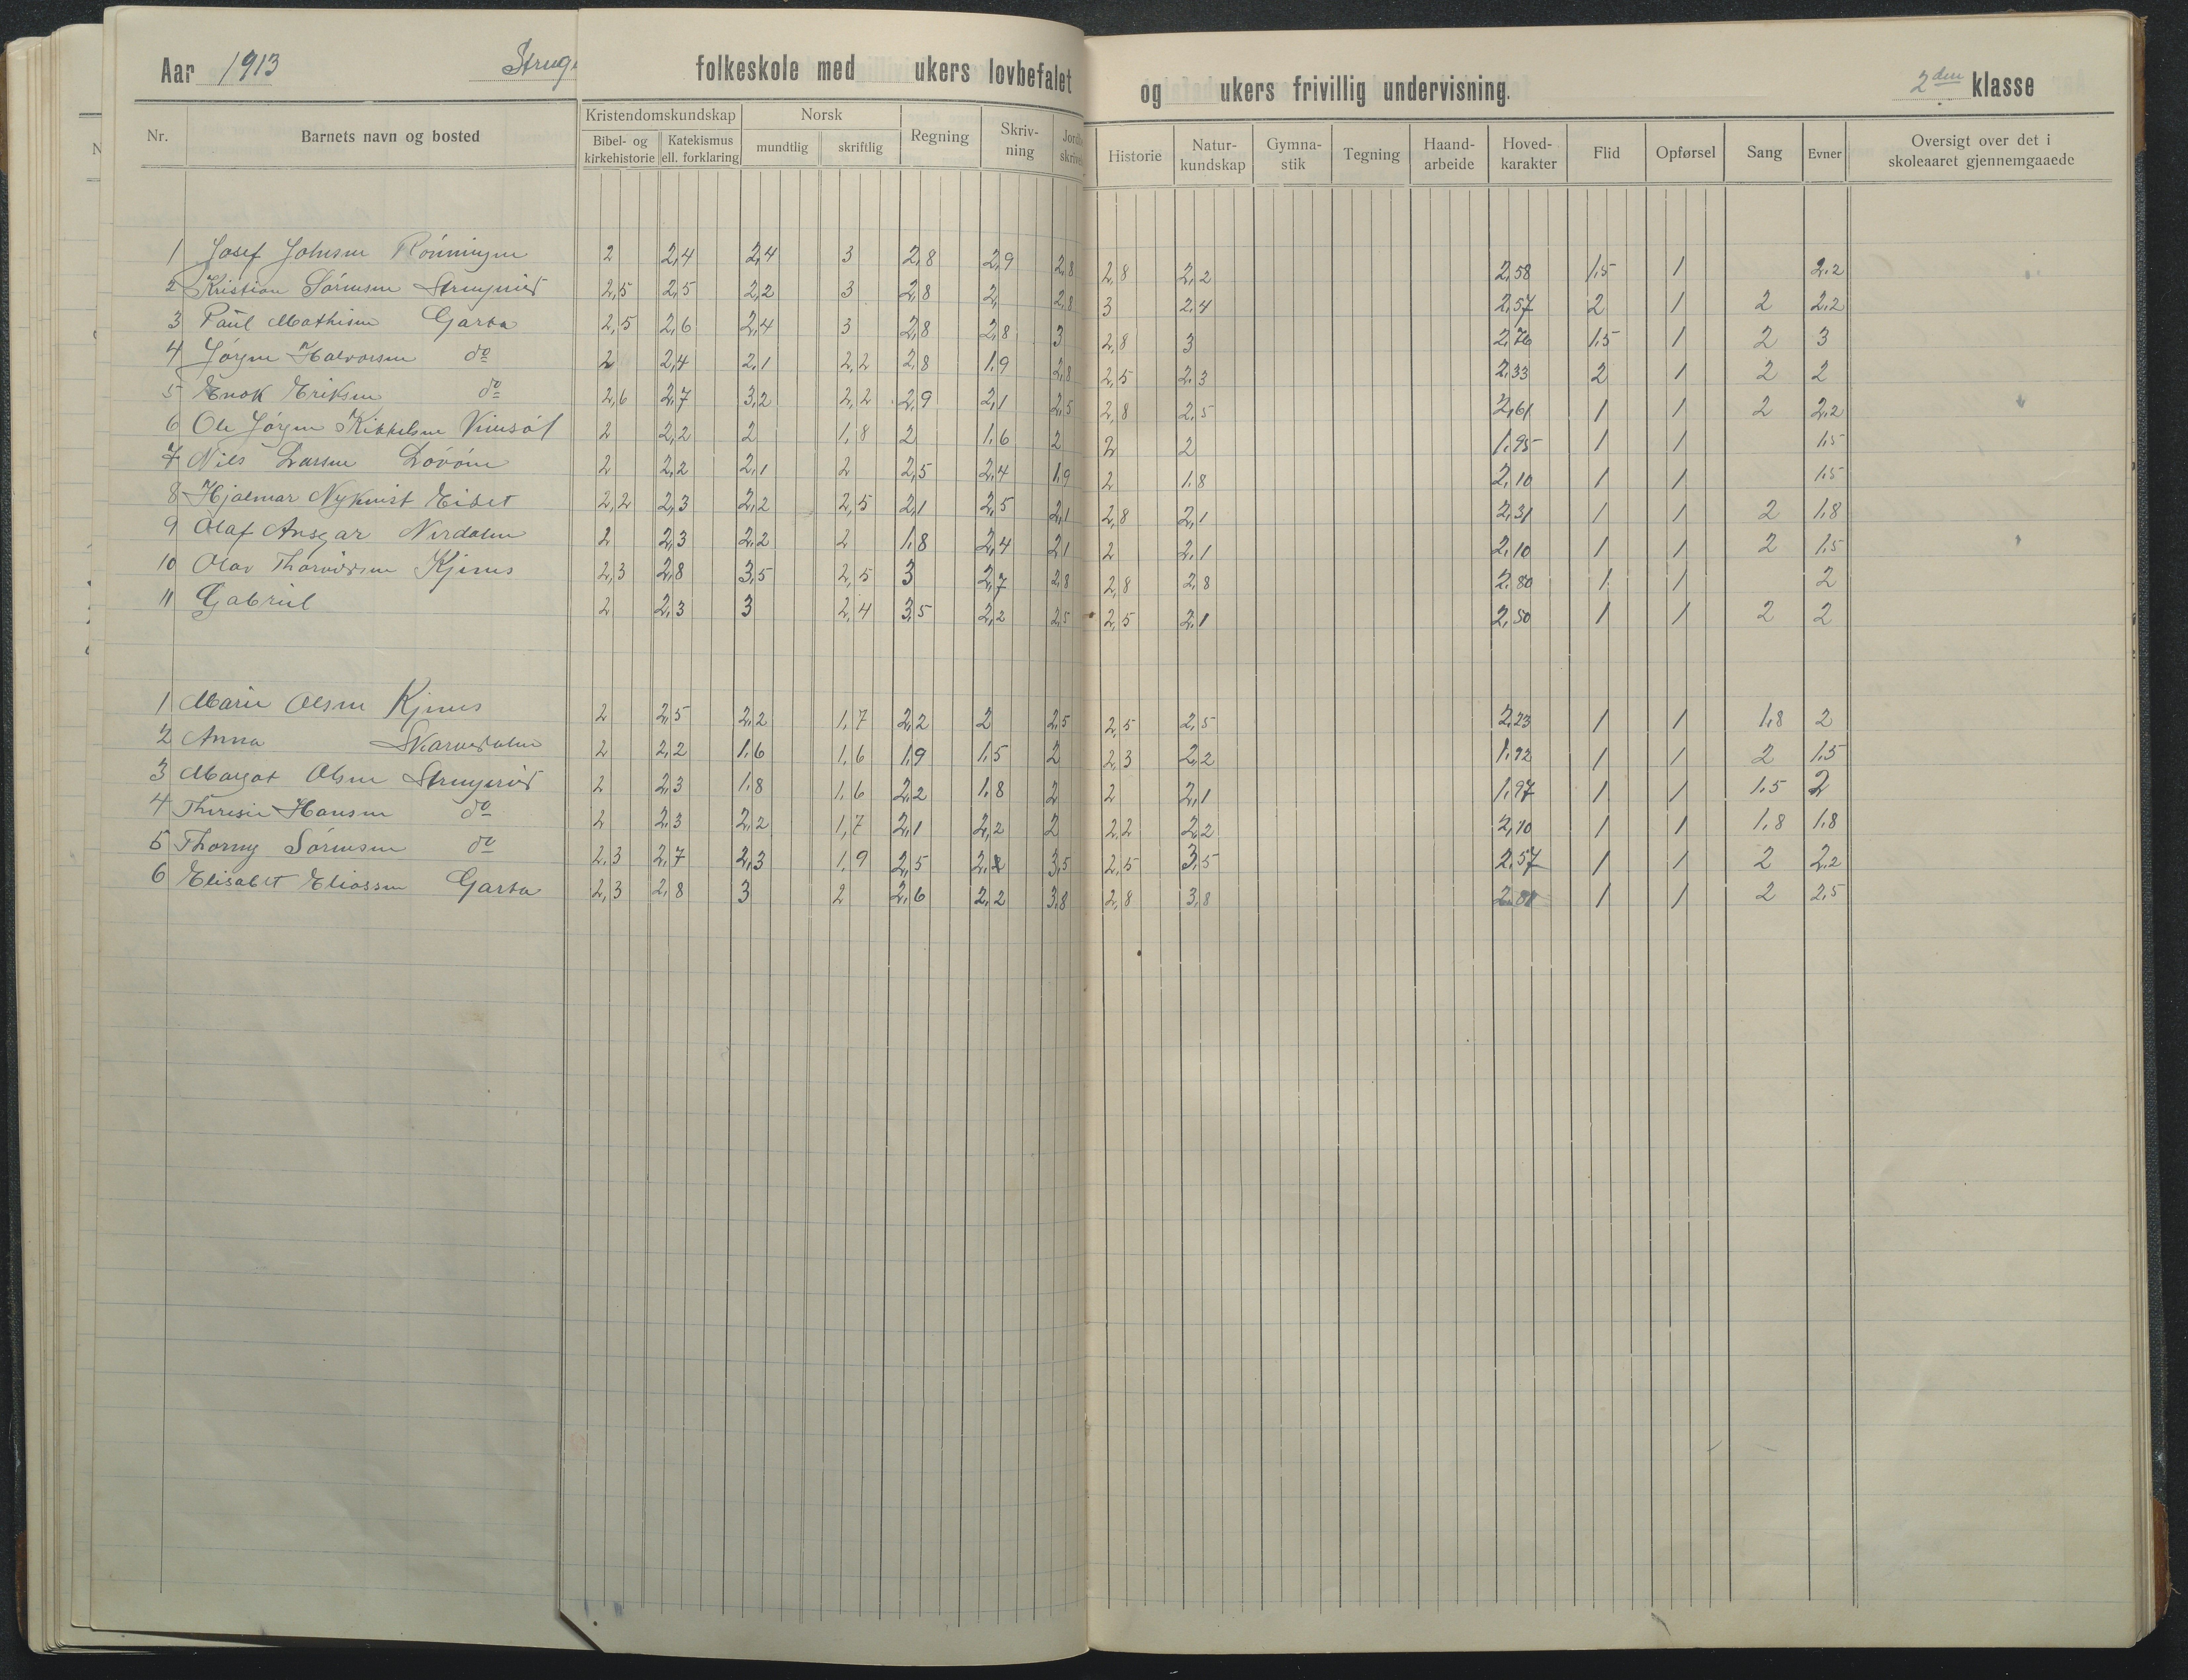 Aar 1913 Strug folkeskole med ukers lovbefalet og ukers frivillig undervisning. 2den klasse
Nr. Barnets navn og bosted Kristendomskundskap Bibel- og kirkehistorie Katekismus ell. forklaring Norsk mundtlig skriftlig Regning Skriv-ning Historie Natur-kundskap Gymna-stik Tegning Haand-arbeide Hoved-karakter Flid Opførsel Sang Evner Oversigt over det i skoleaaret gjennemgaaede
1 Josef Johnsen Rønningen 2 2,4 2,4 3 2,8 2,9 2,8 2,8 2,2 2,58 1,5 1 2,2
2 Kristian Sørensen Strugerød 2,5 2,5 2,2 3 2,8 2, 2,8 3 2,4 2,57 2 1 2 2,2
3 Paul Mathisen Garta 2,5 2,6 2,4 3 2,8 2,8 3 2,8 3 2,76 1,5 1 2 3
4 Jørgen Halvorsen do 2 2,4 2,1 2,2 2,8 1,9 2,8 2,5 2,3 2,33 2 1 2 2
5 Enok Eriksen do 2,6 2,7 3,2 2,2 2,9 2,1 2,5 2,8 2,5 2,61 1 1 2 2,2
6 Ole Jørgen 2 2,2 2 1,8 2 1,6 2 2 2 1,95 1 1 1,5
7 Nils Larsen 2 2,2 2,1 2 2,5 2,4 1,9 2 1,8 2,10 1 1 1,5
8 Hjalmar Nykvist Eidet 2,2 2,3 2,2 2,5 2,1 2,5 2,1 2,8 2,1 2,31 1 1 2 1,8
9 Olaf Ansgar Nerdalen 2 2,3 2,2 2 1,8 2,4 2,1 2 2,1 2,10 1 1 2 1,5
10 Olav Thorvidsen Kjenes 2,3 2,8 3,5 2,5 3 2,7 2,8 2,8 2,8 2,80 1 1 2
11 Gabriel 2 2,3 3 2,4 3,5 2,2 2,5 2,5 2,1 2,50 1 1 2 2
1 Marie Olsen Kjenes 2 2,5 2,2 1,7 2,2 2 2,5 2,5 2,5 2,23 1 1 1,8 2
2 Anna Skarvedalen 2 2,2 1,6 1,6 1,9 1,5 2 2,3 2,2 1,92 1 1 2 1,5
3 Margot Olsen Strugerød 2 2,3 1,8 1,6 2,2 1,8 2 2 2,1 1,97 1 1 1,5 2
4 Theresie Hansen do 2 2,3 2,2 1,7 2,1 2,2 2 2,2 2,2 2,10 1 1 1,8 1,8
5 Thorny Sørensen do 2,3 2,7 2,3 1,9 2,5 3,5 2,5 3,5 2,57 1 1 2 2,2
6 Elisabet Eliassen Garta 2,3 2,8 3 2 2,6 2,2 3,8 2,8 3,8 1 1 2 2,5